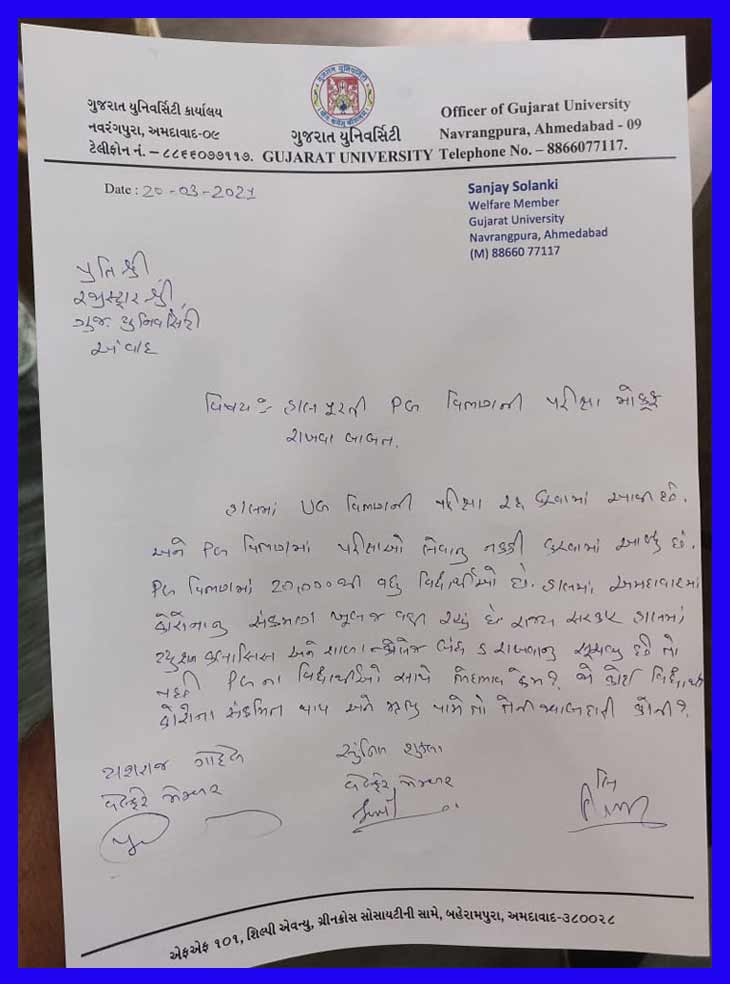 ગુજરાત યુનિવર્સિટી કાર્યાલય
નવરંગપુરા, અમદાવાદ-૦૯
ટેલીફોન નં. – ૮૮૬૬૦૭૭૧૧૭.
ગુજરાત યુનિવર્સિટી
GUJARAT UNIVERSITY
Officer of Gujarat University
Navrangpura, Ahmedabad - 09
Telephone No. – 8866077117.
Date : 20-03-2021
Sanjay Solanki
Welfare Member
Gujarat University
Navrangpura, Ahmedabad
(M) 88660 77117
પ્રતિ શ્રી,
રજીસ્ટ્રાર શ્રી,
ગુજ. યુનિવર્સિટી
વિષય :- હાલ પૂરતી PG વિભાગની પરીક્ષા મોકૂફ
રાખવા બાબત.
હાલમાં UG વિભાગની પરીક્ષા રદ્દ કરવામાં આવી છે.
અને PG વિભાગમાં પરીક્ષાઓ લેવાનું નક્કી કરવામાં આવ્યુ છે.
PG વિભાગમાં 20,000થી વધુ વિદ્યાર્થીઓ છે. હાલમાં, અમદાવાદમાં
કોરોનાનુ સંક્રમણ ખૂબજ વધી રહ્યું છે. રાજ્ય સરકાર હાલમાં
ટયુશન કલાસિસ અને શાળા કોલેજ બંધ રાખવાનુ સૂચવ્યુ છે તો
PG ના વિદ્યાર્થીઓ સાથે ભેદભાવ કેમ? જો કોઈ વિદ્યાર્થી
કોરોના સંક્રમિત થાય અને મૃત્યુ પામે તો તેની જવાબદારી કોની?
યશરાજ ગોહેલ
વેલફેર મેમ્બર
શુક્લા
વેલફેર મેમ્બર
એફએફ ૧૦૧, શિલ્પી એવન્યુ, ગ્રીનક્રોસ સોસાયટીની સામે, બહેરામપુરા, અમદાવાદ-૩૮૦૦૨૮